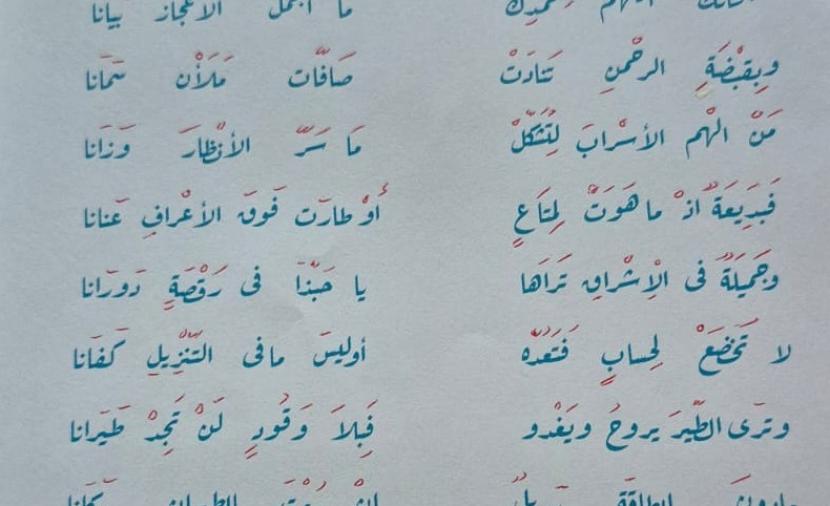 ما أجمل الاعجاز بيانا
وبِقبْضَةِ الرحْمنِ تنَادَتْ صَافَّات مَلَأْن سَمانا
مَنْ الْهم الأسْرابَ لِتَشَكّلْ مَا سَرَّ الأنْظارَ وَزَانا
فَبَدِيَعةٌ اذْ ما هَوَتْ لِمتَاعٍ أوْ طارَت فَوقَ الأعْرافِ عَنانا
وجَميلَةٌ فى الْإشْراقِ تَراَها يا حَبّذا فى رَقْصَةٍ دَوَرانا
لا تَخضَعْ لِحِسابٍ فَتَعُدّه أوليسَ مافى التّنْزِيلِ كَفَانا
وتَرَى الطّيرَ يروحُ ويَغْدو فَبِلاَ وَقُودٍ لَنْ تَجِدْ طَيَرانا